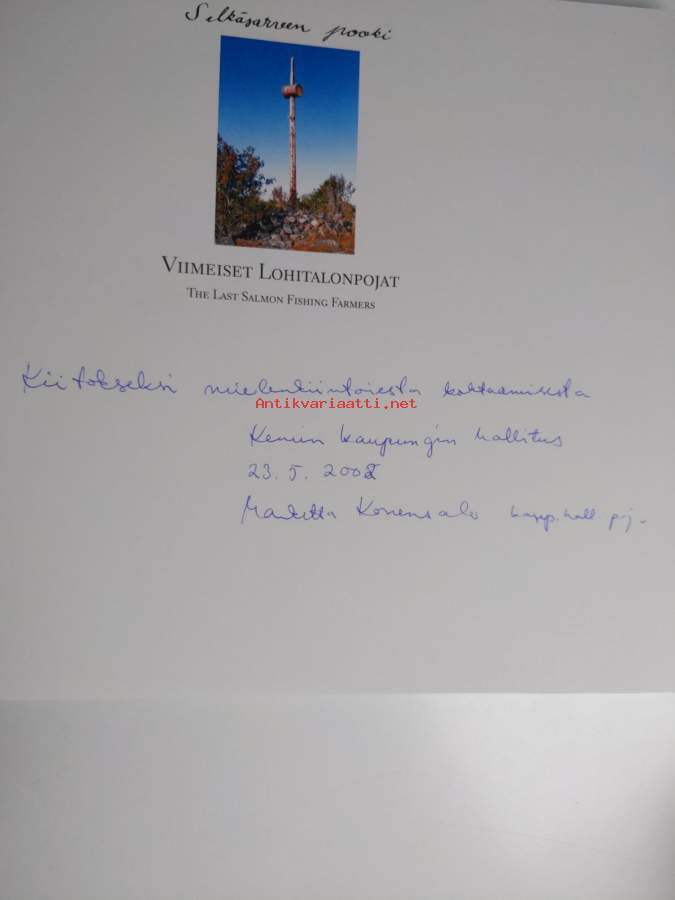 Selkäsarven pooki
VIIMEISET LOHITALONPOJAT
THE LAST SALMON FISHING FARMERS
Kiitokseksi mielenkiintoisesta kohtaamisesta
Antikvariaatti.net
Kemin kaupungin hallitus
23.5.2002
Marketta kaup.hall. pj.